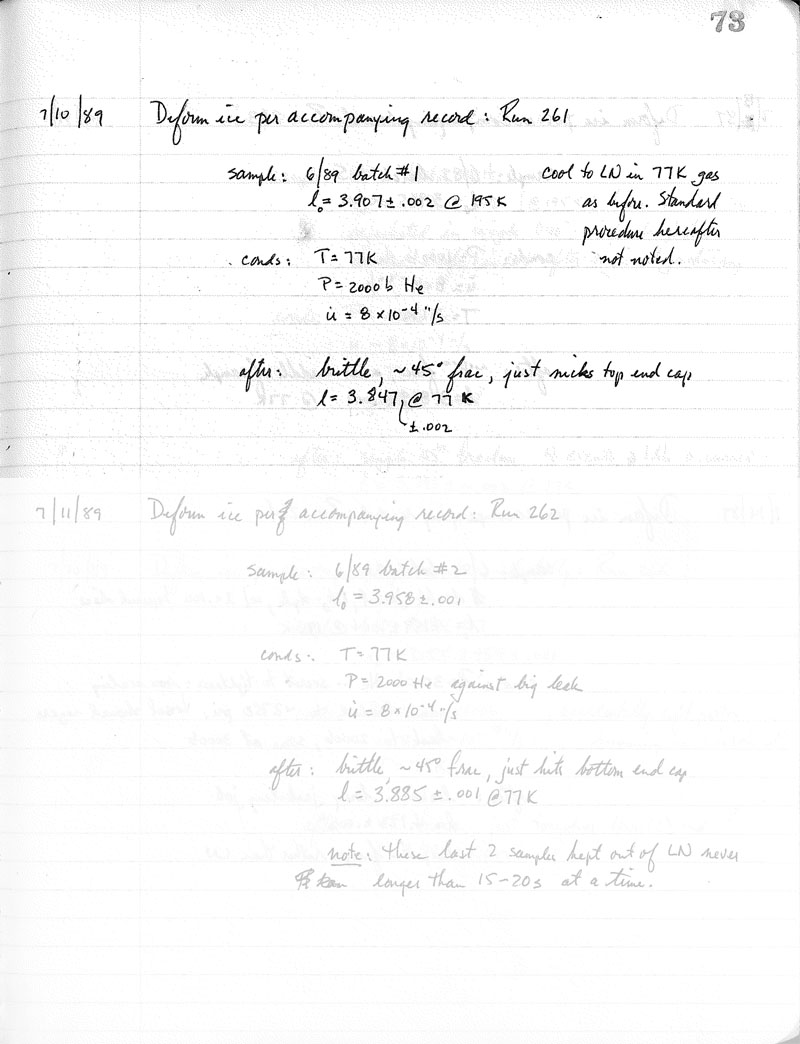 73
7/10/89 Deform ice per accompanying record: Run 261
sample: 6/89 batch #1 cool to LN in 77K gas
l₀ = 3.907 ± .002 @ 195K as before. Standard
procedure hereafter
conds: T = 77K not noted.
P = 2000 b He
u̇ = 8 × 10⁻⁴ "/s
after: brittle, ~45° frac, just nicks top end cap
l = 3.847 @ 77 K
± .002
7/11/89 Deform ice per accompanying record: Run 262
sample: 6/89 batch #2
l₀ = 3.958 ± .001
conds: T = 77K
P = 2000 He against big leak
u̇ = 8 × 10⁻⁴ "/s
after: brittle, ~45° frac, just hits bottom end cap
l = 3.885 ± .001 @ 77K
note: these last 2 samples kept out of LN never
longer than 15-20s at a time.